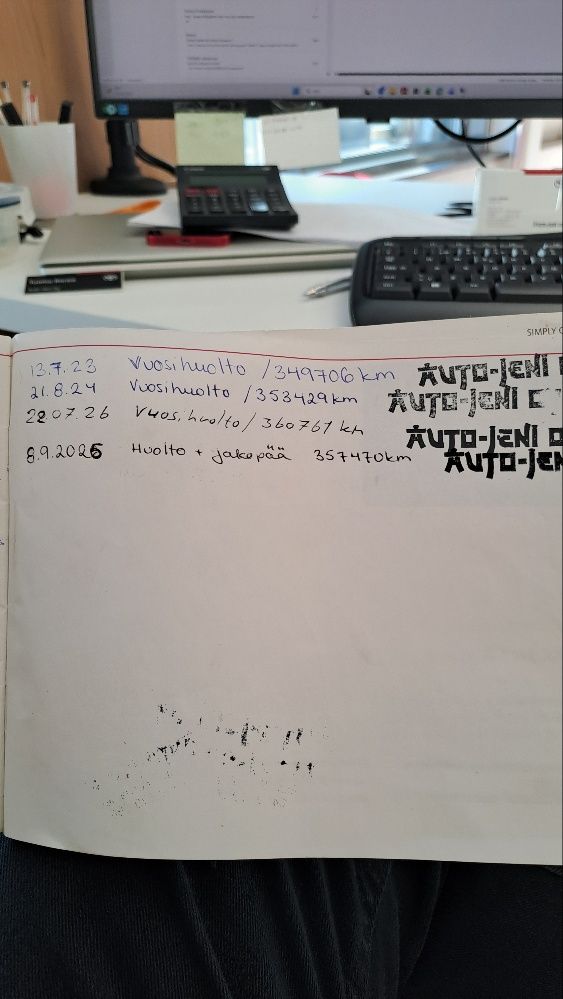 SIMPLY
13.7.23 Vuosihuolto /349706 km AUTO-JENI
21.8.24 Vuosihuolto /353429km AUTO-JENI
22.07.26 Vuosihuolto/ 360761 km AUTO-JENI
8.9.2025 Huolto + jakopää 357470km AUTO-JENI